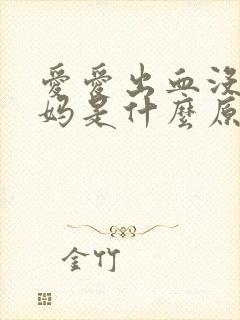 愛愛出血沒
妈是什麼原
金竹